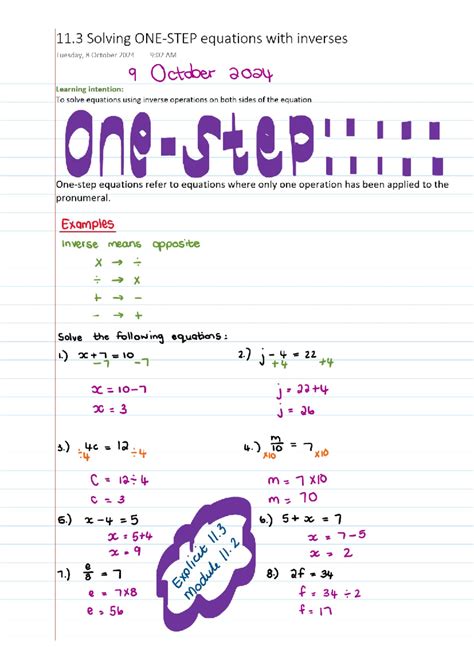 11.3 Solving ONE-STEP equations with inverses
Tuesday, 8 October 2024 9:02 AM
9 October 2024
Learning intention:
To solve equations using inverse operations on both sides of the equation
One-step
One-step equations refer to equations where only one operation has been applied to the
pronumeral.
Examples
Inverse means opposite
× → ÷
÷ → ×
+ → -
- → +
Solve the following equations:
1.) x + 7 = 10
-7 -7
x = 10-7
x = 3
2.) j - 4 = 22
+4 +4
j = 22+4
j = 26
3.) 4c = 12
÷4 ÷4
c = 12÷4
c = 3
4.) m/10 = 7
×10 ×10
m = 7 ×10
m = 70
5.) x - 4 = 5
x = 5+4
x = 9
6.) 5 + x = 7
x = 7-5
x = 2
7.) e/8 = 7
e = 7×8
e = 56
Explicit 11.3
Module 11.2
8.) 2f = 34
f = 34 ÷ 2
f = 17